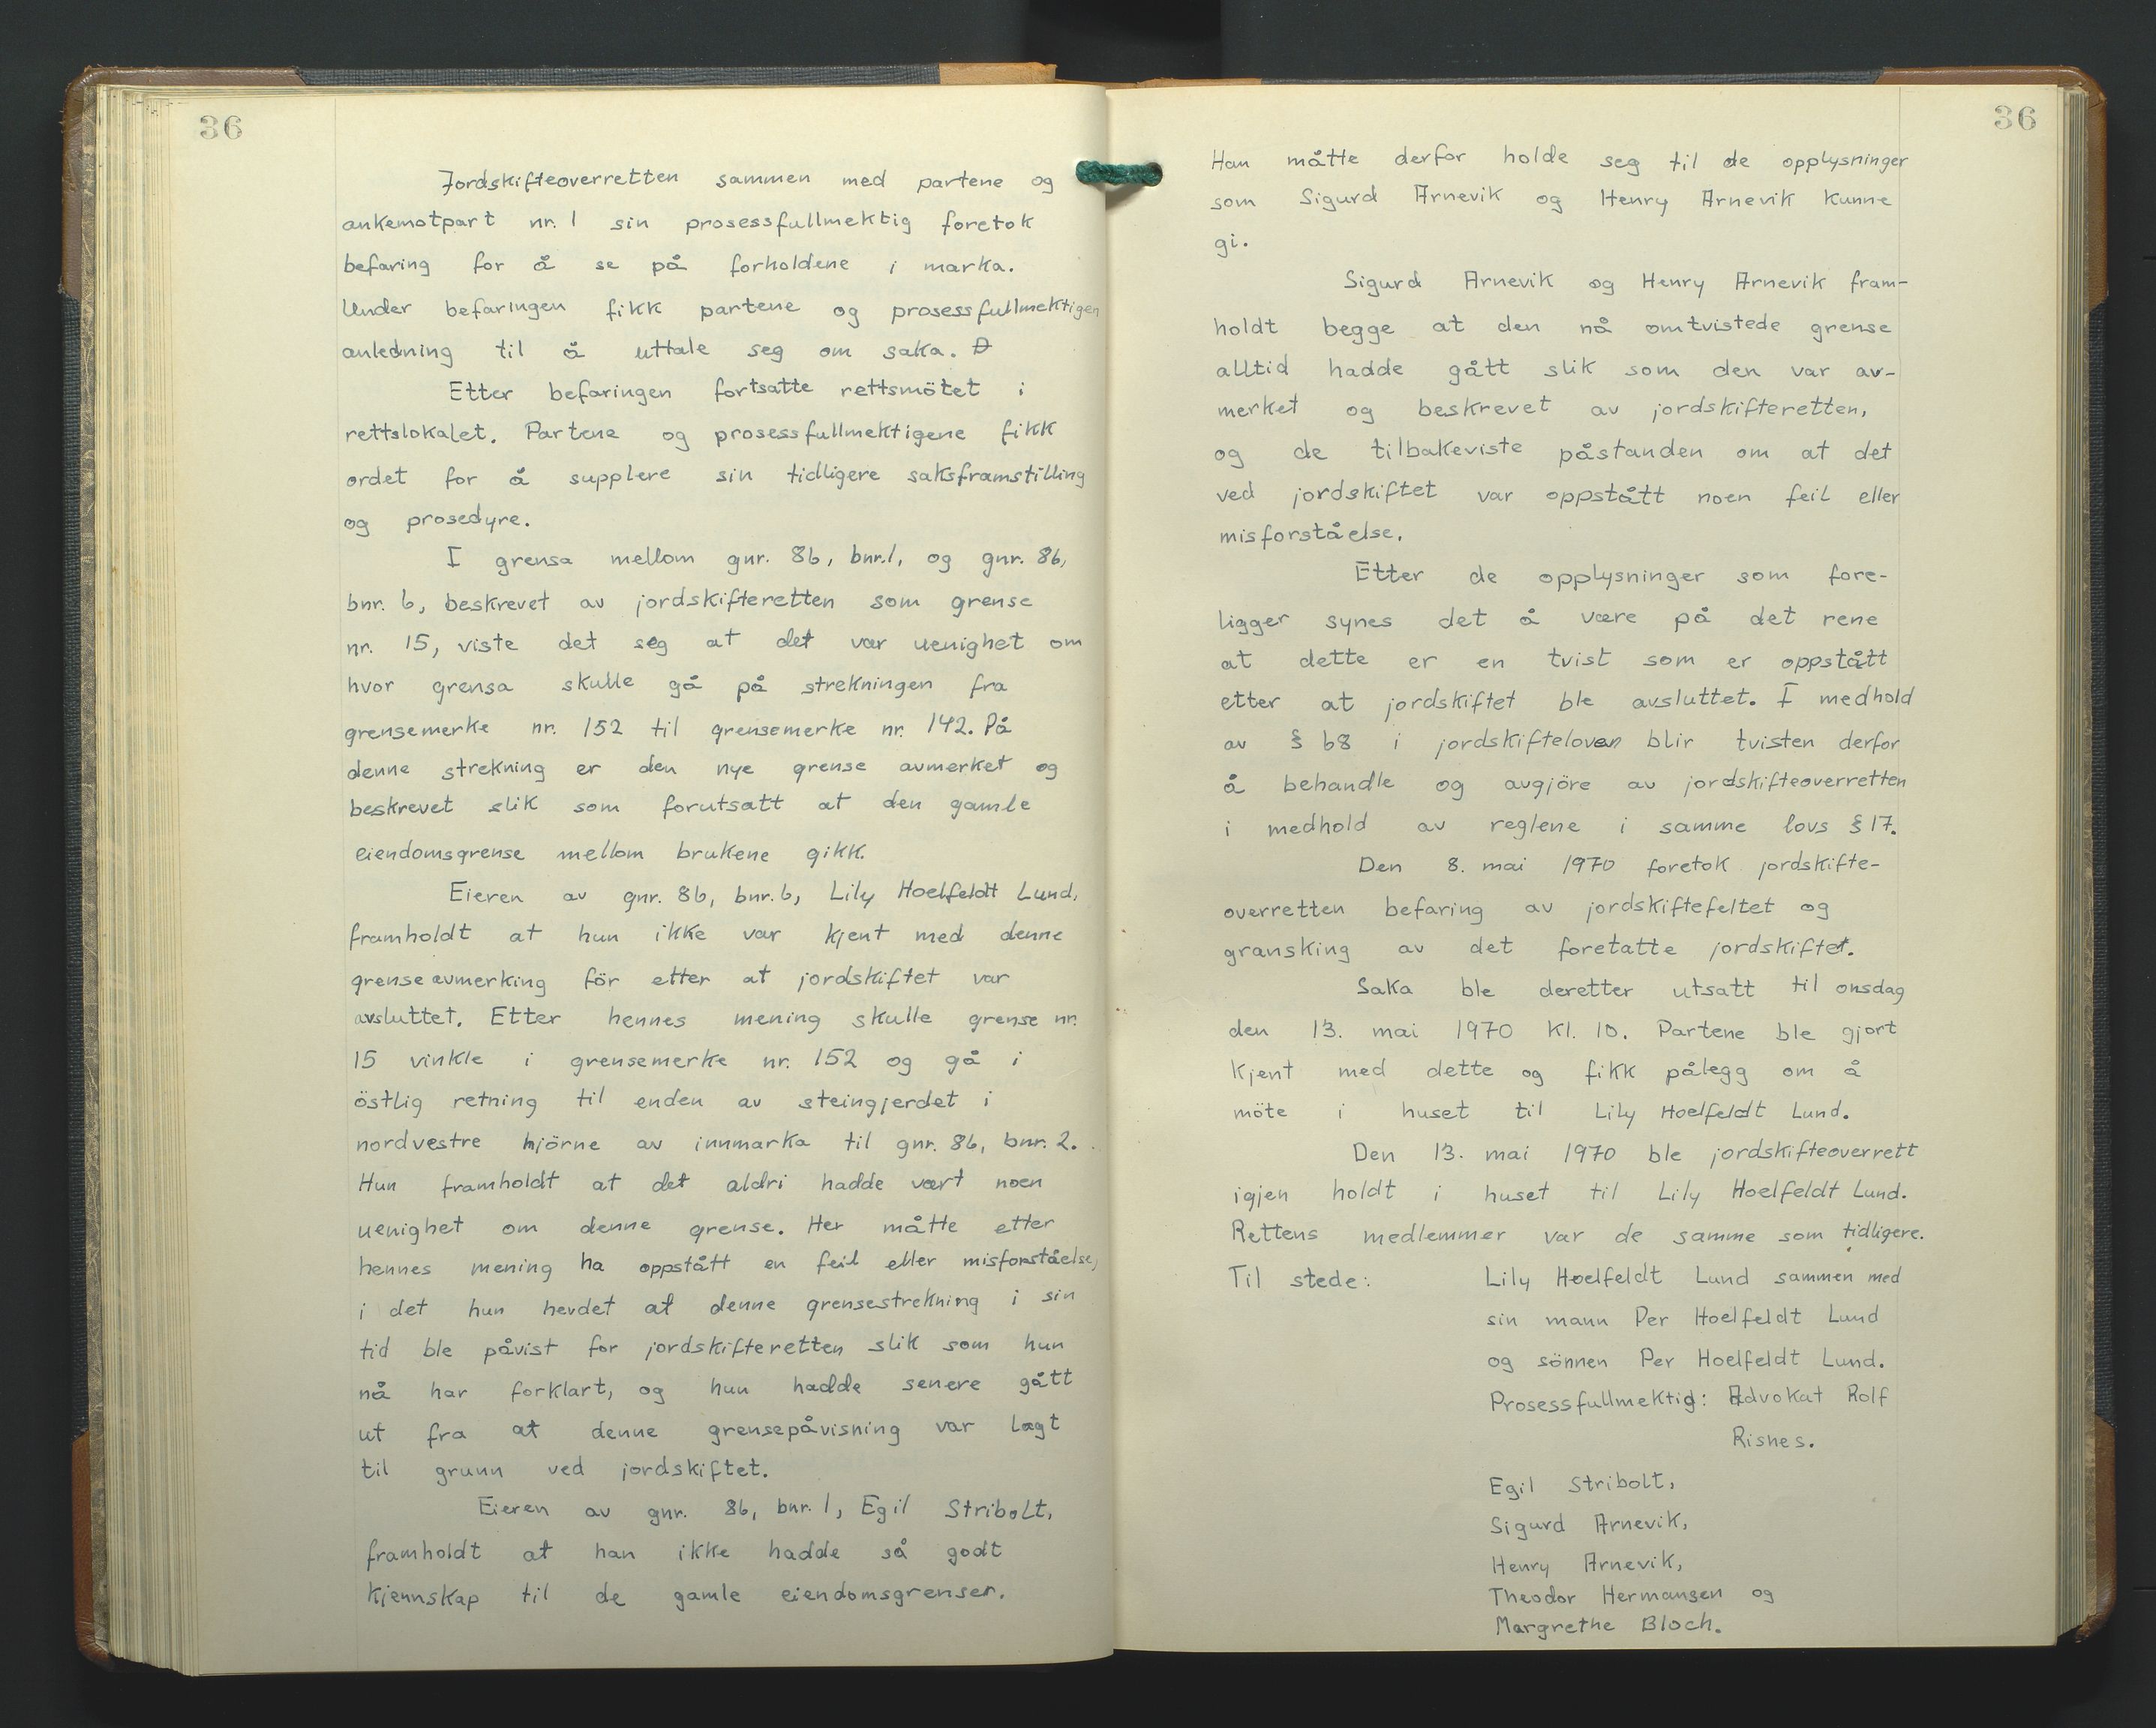 36
Jordskifteoverretten sammen med partene og
ankemotpart nr. 1 sin prosessfullmektig foretok
befaring for å se på forholdene i marka.
Under befaringen fikk partene og prosessfullmektigen
anledning til å uttale seg om saka.
Etter befaringen fortsatte rettsmötet i
rettslokalet. Partene og prosessfullmektigene fikk
ordet for å supplere sin tidligere saksframstilling
og prosedyre.
I grensa mellom gnr. 86, bnr. 1, og gnr. 86,
bnr. 6, beskrevet av jordskifteretten som grense
nr. 15, viste det seg at det var uenighet om
hvor grensa skulle gå på strekningen fra
grensemerke nr. 152 til grensemerke nr. 142. På
denne strekning er den nye grense avmerket og
beskrevet slik som forutsatt at den gamle
eiendomsgrense mellom brukene gikk.
Eieren av gnr. 86, bnr. 6, Lily Hoelfeldt Lund,
framholdt at hun ikke var kjent med denne
grenseavmerking för etter at jordskiftet var
avsluttet. Etter hennes mening skulle grense nr.
15 vinkle i grensemerke nr. 152 og gå i
östlig retning til enden av steingjerdet i
nordvestre hjörne av innmarka til gnr. 86, bnr. 2.
Hun framholdt at det aldri hadde vært noen
uenighet om denne grense. Her måtte etter
hennes mening ha oppstått en feil eller misforståelse,
i det hun hevdet at denne grensestrekning i sin
tid ble påvist for jordskifteretten slik som hun
nå har forklart, og hun hadde senere gått
ut fra at denne grensepåvisning var lagt
til grunn ved jordskiftet.
Eieren av gnr. 86, bnr. 1, Egil Stribolt,
framholdt at han ikke hadde så godt
kjennskap til de gamle eiendomsgrenser.
36
Han måtte derfor holde seg til de opplysninger
som Sigurd Arnevik og Henry Arnevik kunne
gi.
Sigurd Arnevik og Henry Arnevik fram-
holdt begge at den nå omtvistede grense
alltid hadde gått slik som den var av-
merket og beskrevet av jordskifteretten,
og de tilbakeviste påstanden om at det
ved jordskiftet var oppstått noen feil eller
misforståelse.
Etter de opplysninger som fore-
ligger synes det å være på det rene
at dette er en tvist som er oppstått
etter at jordskiftet ble avsluttet. I medhold
av § 68 i jordskifteloven blir tvisten derfor
å behandle og avgjöre av jordskifteoverretten
i medhold av reglene i samme lovs § 17.
Den 8. mai 1970 foretok jordskifte-
overretten befaring av jordskiftefeltet og
gransking av det foretatte jordskiftet.
Saka ble deretter utsatt til onsdag
den 13. mai 1970 kl. 10. Partene ble gjort
kjent med dette og fikk pålegg om å
möte i huset til Lily Hoelfeldt Lund.
Den 13. mai 1970 ble jordskifteoverrett
igjen holdt i huset til Lily Hoelfeldt Lund.
Rettens medlemmer var de samme som tidligere.
Til stede: Lily Hoelfeldt Lund sammen med
sin mann Per Hoelfeldt Lund
og sönnen Per Hoelfeldt Lund.
Prosessfullmektig: Advokat Rolf
Risnes.
Egil Stribolt,
Sigurd Arnevik,
Henry Arnevik,
Theodor Hermansen og
Margrethe Bloch.